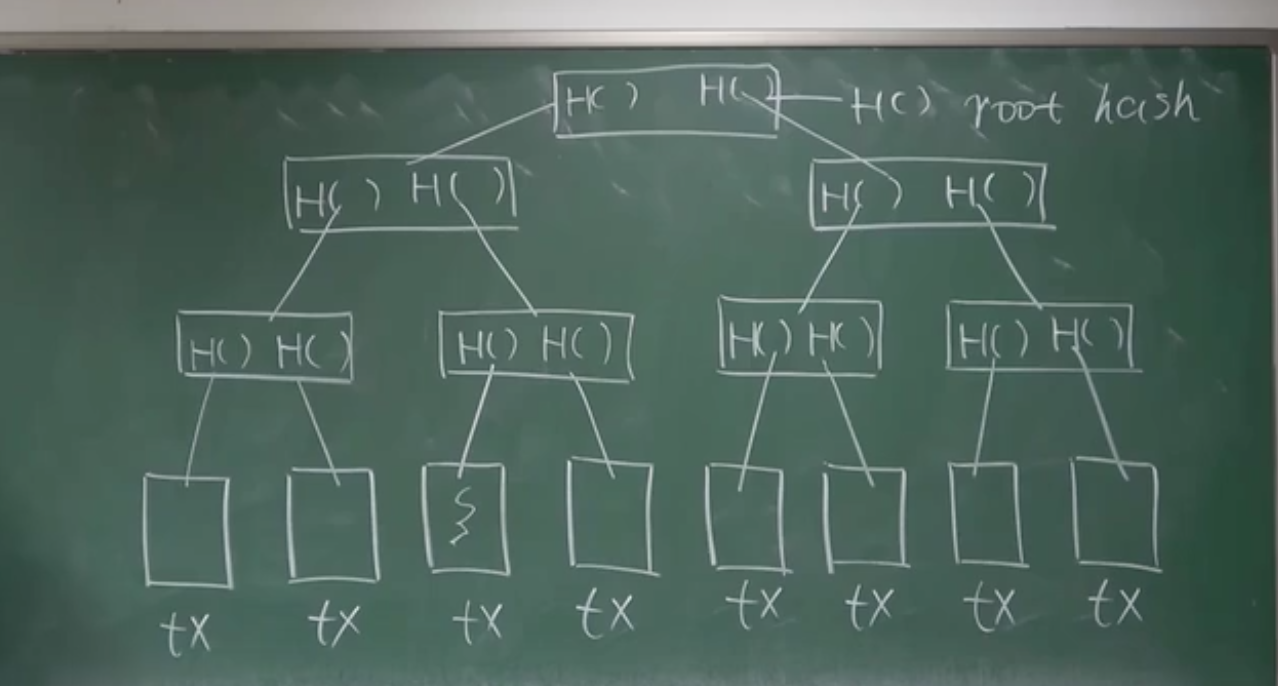 H() H() H() root hash
H() H() H() H()
H() H() H() H() H() H() H() H()
tx tx tx tx tx tx tx tx